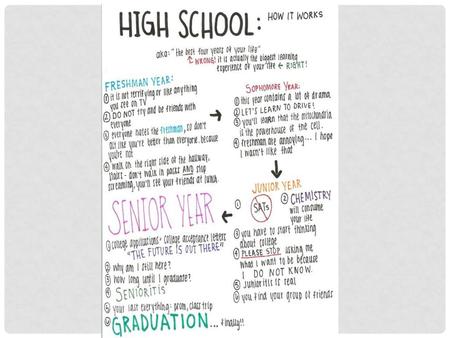 HIGH SCHOOL: HOW IT WORKS
aka: "the best four years of your life"
↳ WRONG! it is actually the biggest learning
experience of your life ← RIGHT!
FRESHMAN YEAR:
① it is not terrifying or like anything
you see on TV
② DO NOT try and be friends with
everyone
③ everyone hates the freshman, so don't
act like you're better than everyone. because
you're not
④ walk on the right side of the hallway,
stairs - don't walk in packs AND stop
screaming, you'll see your friends at lunch.
SOPHOMORE YEAR:
① this year contains a lot of drama.
② LET'S LEARN TO DRIVE!
③ you'll learn that the mitochondria
is the powerhouse of the cell.
④ freshman are annoying... I hope
I wasn't like that
JUNIOR YEAR
① SATs
② CHEMISTRY
will consume
your life
③ you have to start thinking
about college
④ PLEASE STOP asking me
what I want to be because
I DO NOT KNOW.
⑤ Junioritis is real
⑥ you find your group of friends
SENIOR YEAR
① college applications + college acceptance letters
"THE FUTURE IS OUT THERE"
② why am I still here?
③ how long until I graduate?
④ SENIORITIS
⑤ your last everything: prom, class trip
⑥ GRADUATION... finally!!